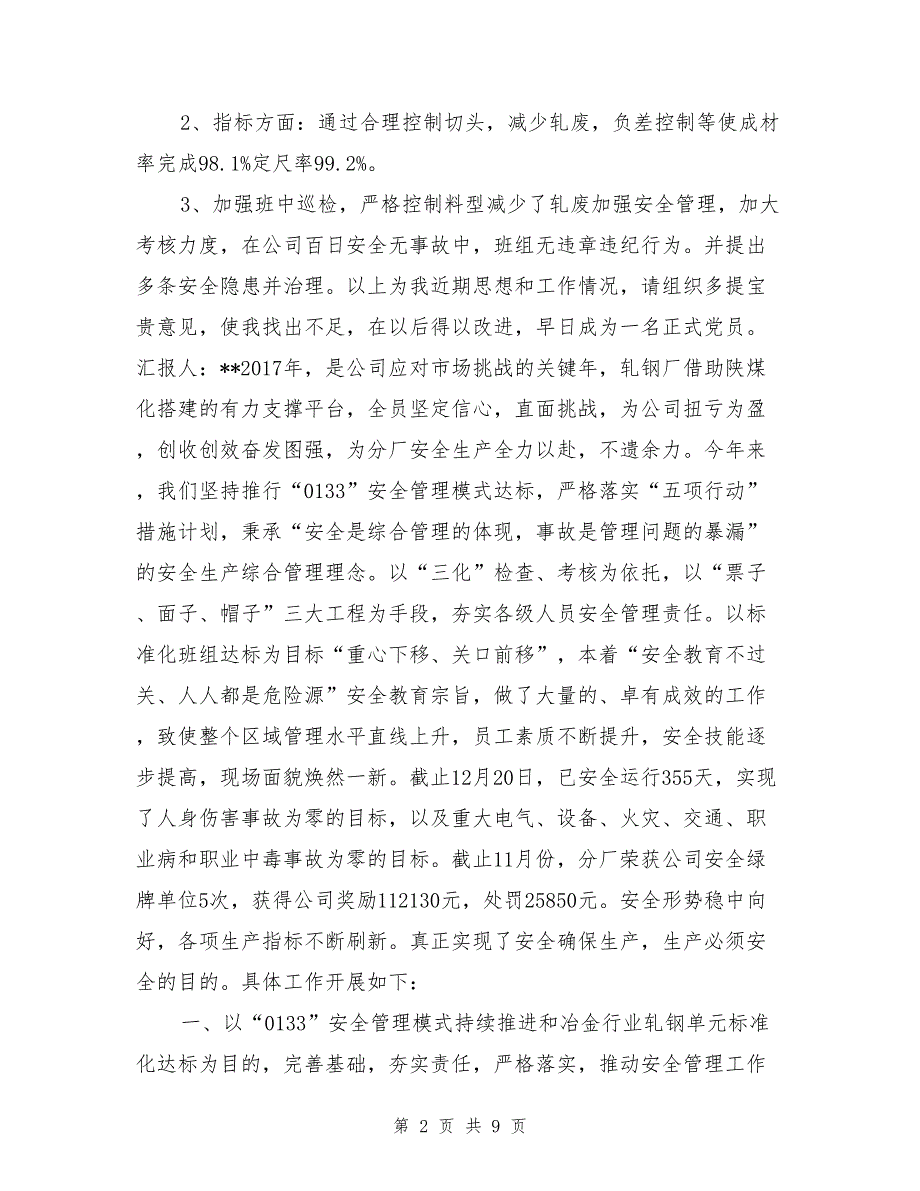 2、指标方面：通过合理控制切头，减少轧废，负差控制等使成材
率完成98.1%定尺率99.2%。
3、加强班中巡检，严格控制料型减少了轧废加强安全管理，加大
考核力度，在公司百日安全无事故中，班组无违章违纪行为。并提出
多条安全隐患并治理。以上为我近期思想和工作情况，请组织多提宝
贵意见，使我找出不足，在以后得以改进，早日成为一名正式党员。
汇报人：**2017年，是公司应对市场挑战的关键年，轧钢厂借助陕煤
化搭建的有力支撑平台，全员坚定信心，直面挑战，为公司扭亏为盈
，创收创效奋发图强，为分厂安全生产全力以赴，不遗余力。今年来
，我们坚持推行“0133”安全管理模式达标，严格落实“五项行动”
措施计划，秉承“安全是综合管理的体现，事故是管理问题的暴漏”
的安全生产综合管理理念。以“三化”检查、考核为依托，以“票子
、面子、帽子”三大工程为手段，夯实各级人员安全管理责任。以标
准化班组达标为目标“重心下移、关口前移”，本着“安全教育不过
关、人人都是危险源”安全教育宗旨，做了大量的、卓有成效的工作
，致使整个区域管理水平直线上升，员工素质不断提升，安全技能逐
步提高，现场面貌焕然一新。截止12月20日，已安全运行355天，实现
了人身伤害事故为零的目标，以及重大电气、设备、火灾、交通、职
业病和职业中毒事故为零的目标。截止11月份，分厂荣获公司安全绿
牌单位5次，获得公司奖励112130元，处罚25850元。安全形势稳中向
好，各项生产指标不断刷新。真正实现了安全确保生产，生产必须安
全的目的。具体工作开展如下：
一、以“0133”安全管理模式持续推进和冶金行业轧钢单元标准
化达标为目的，完善基础，夯实责任，严格落实，推动安全管理工作
第 2 页 共 9 页